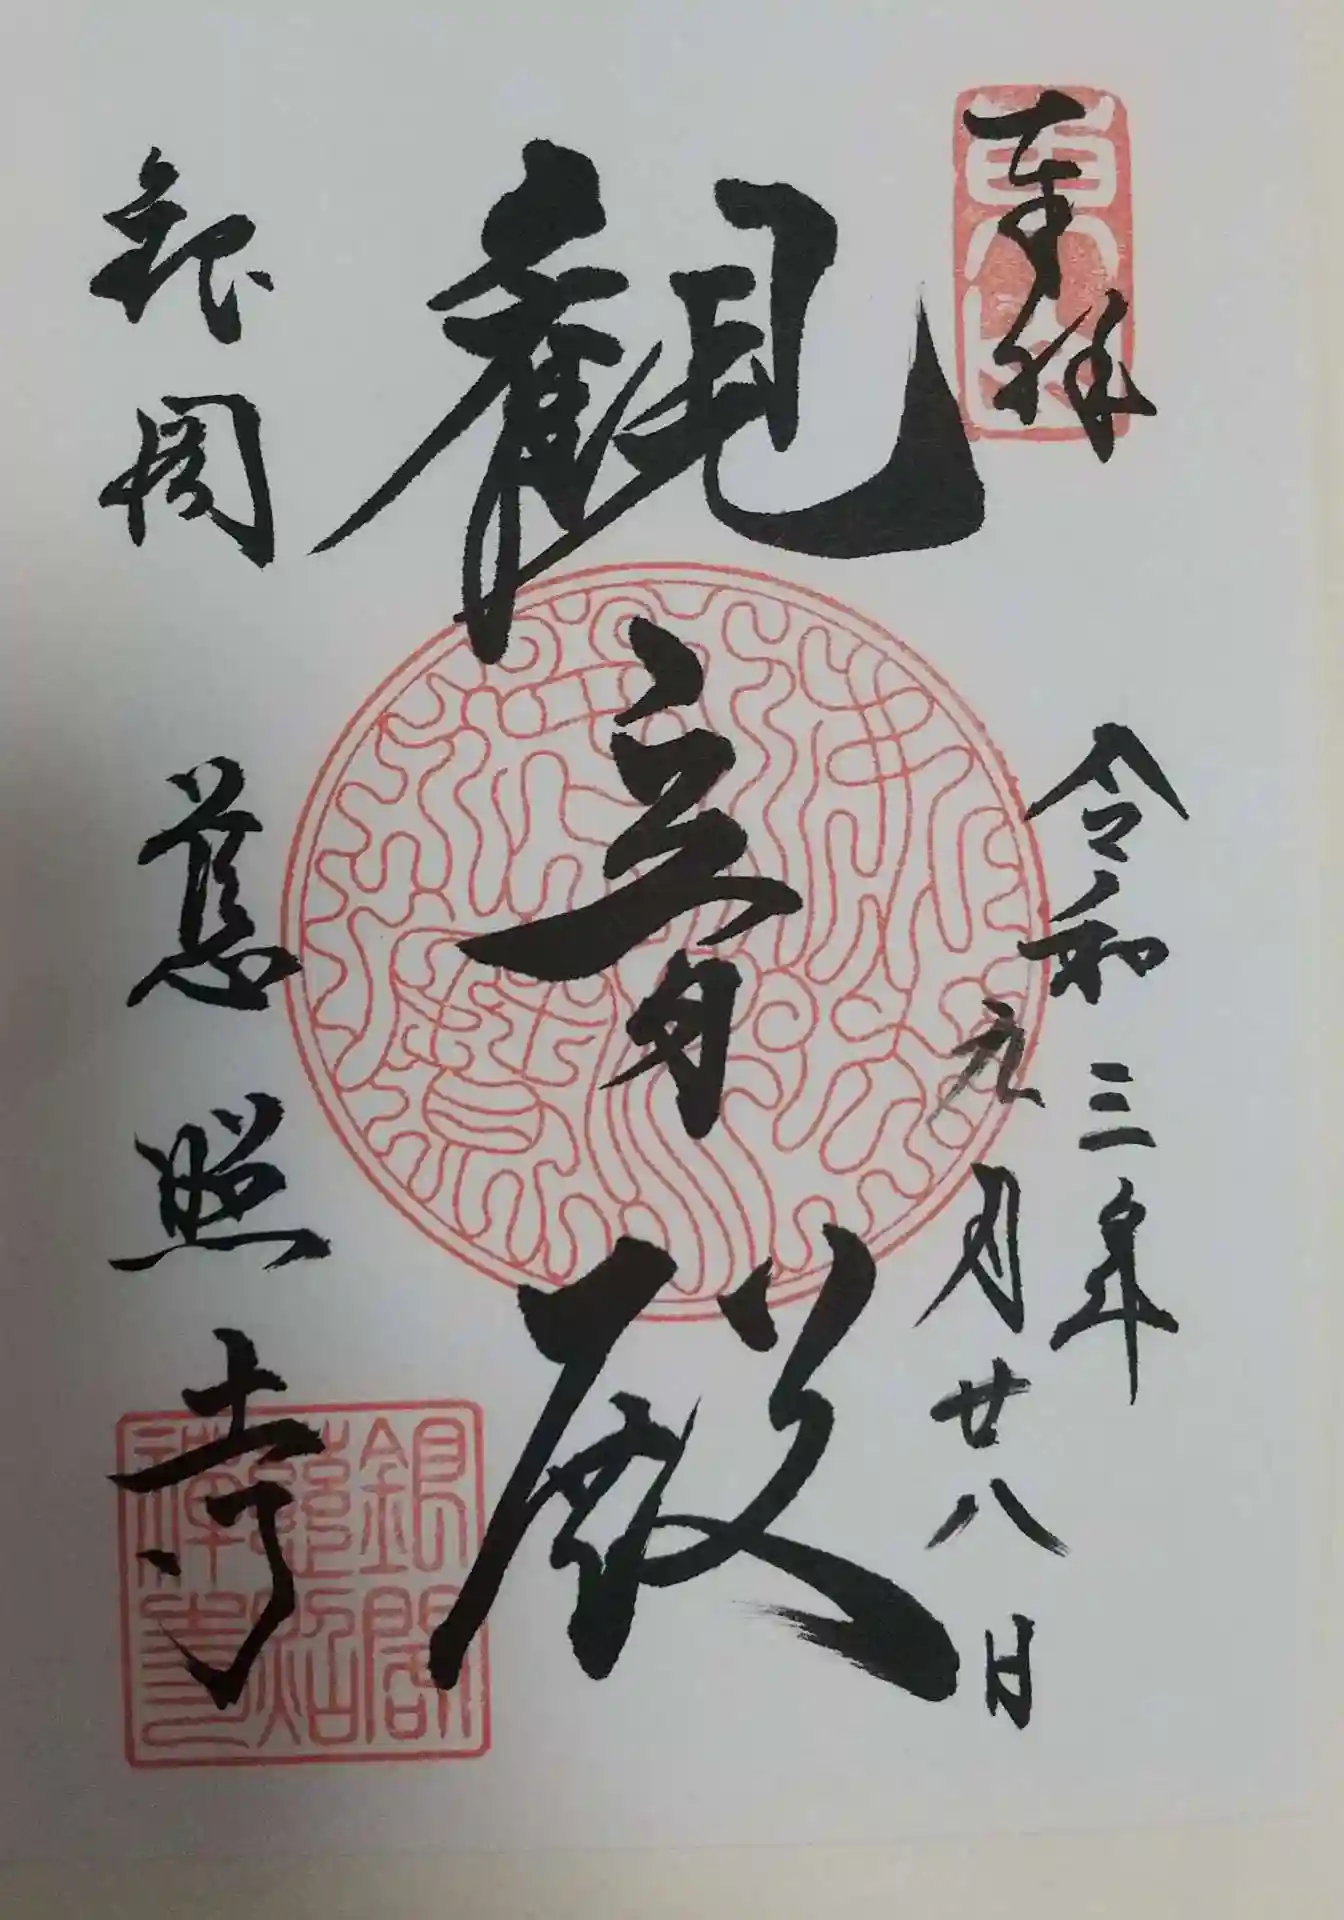 奉拝
令和三年
元月廿八日
観音殿
銀閣
慈照寺
東山
銀閣
慈照
禅寺